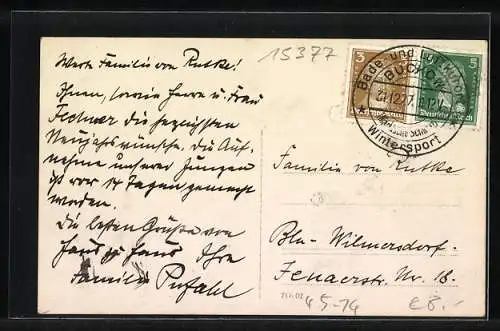 15377
Werte Familie von Rutke!
Ihnen, sowie Herrn u. Frau
Fechner die herzlichsten
Neujahrswünsche. Die Auf-
nahme unserer Jungen
ist vor 14 Tagen gemacht
worden.
Die besten Grüße von
Haus zu Haus Ihre
Familie Pufahl
3
5
Deutsches Reich
Bade- und Luftkurort
BUCKOW
31.12.27.
Wintersport
Familie von Rutke
Bln-Wilmersdorf.
Jenaerstr. Nr. 18.
45-14
€8.-